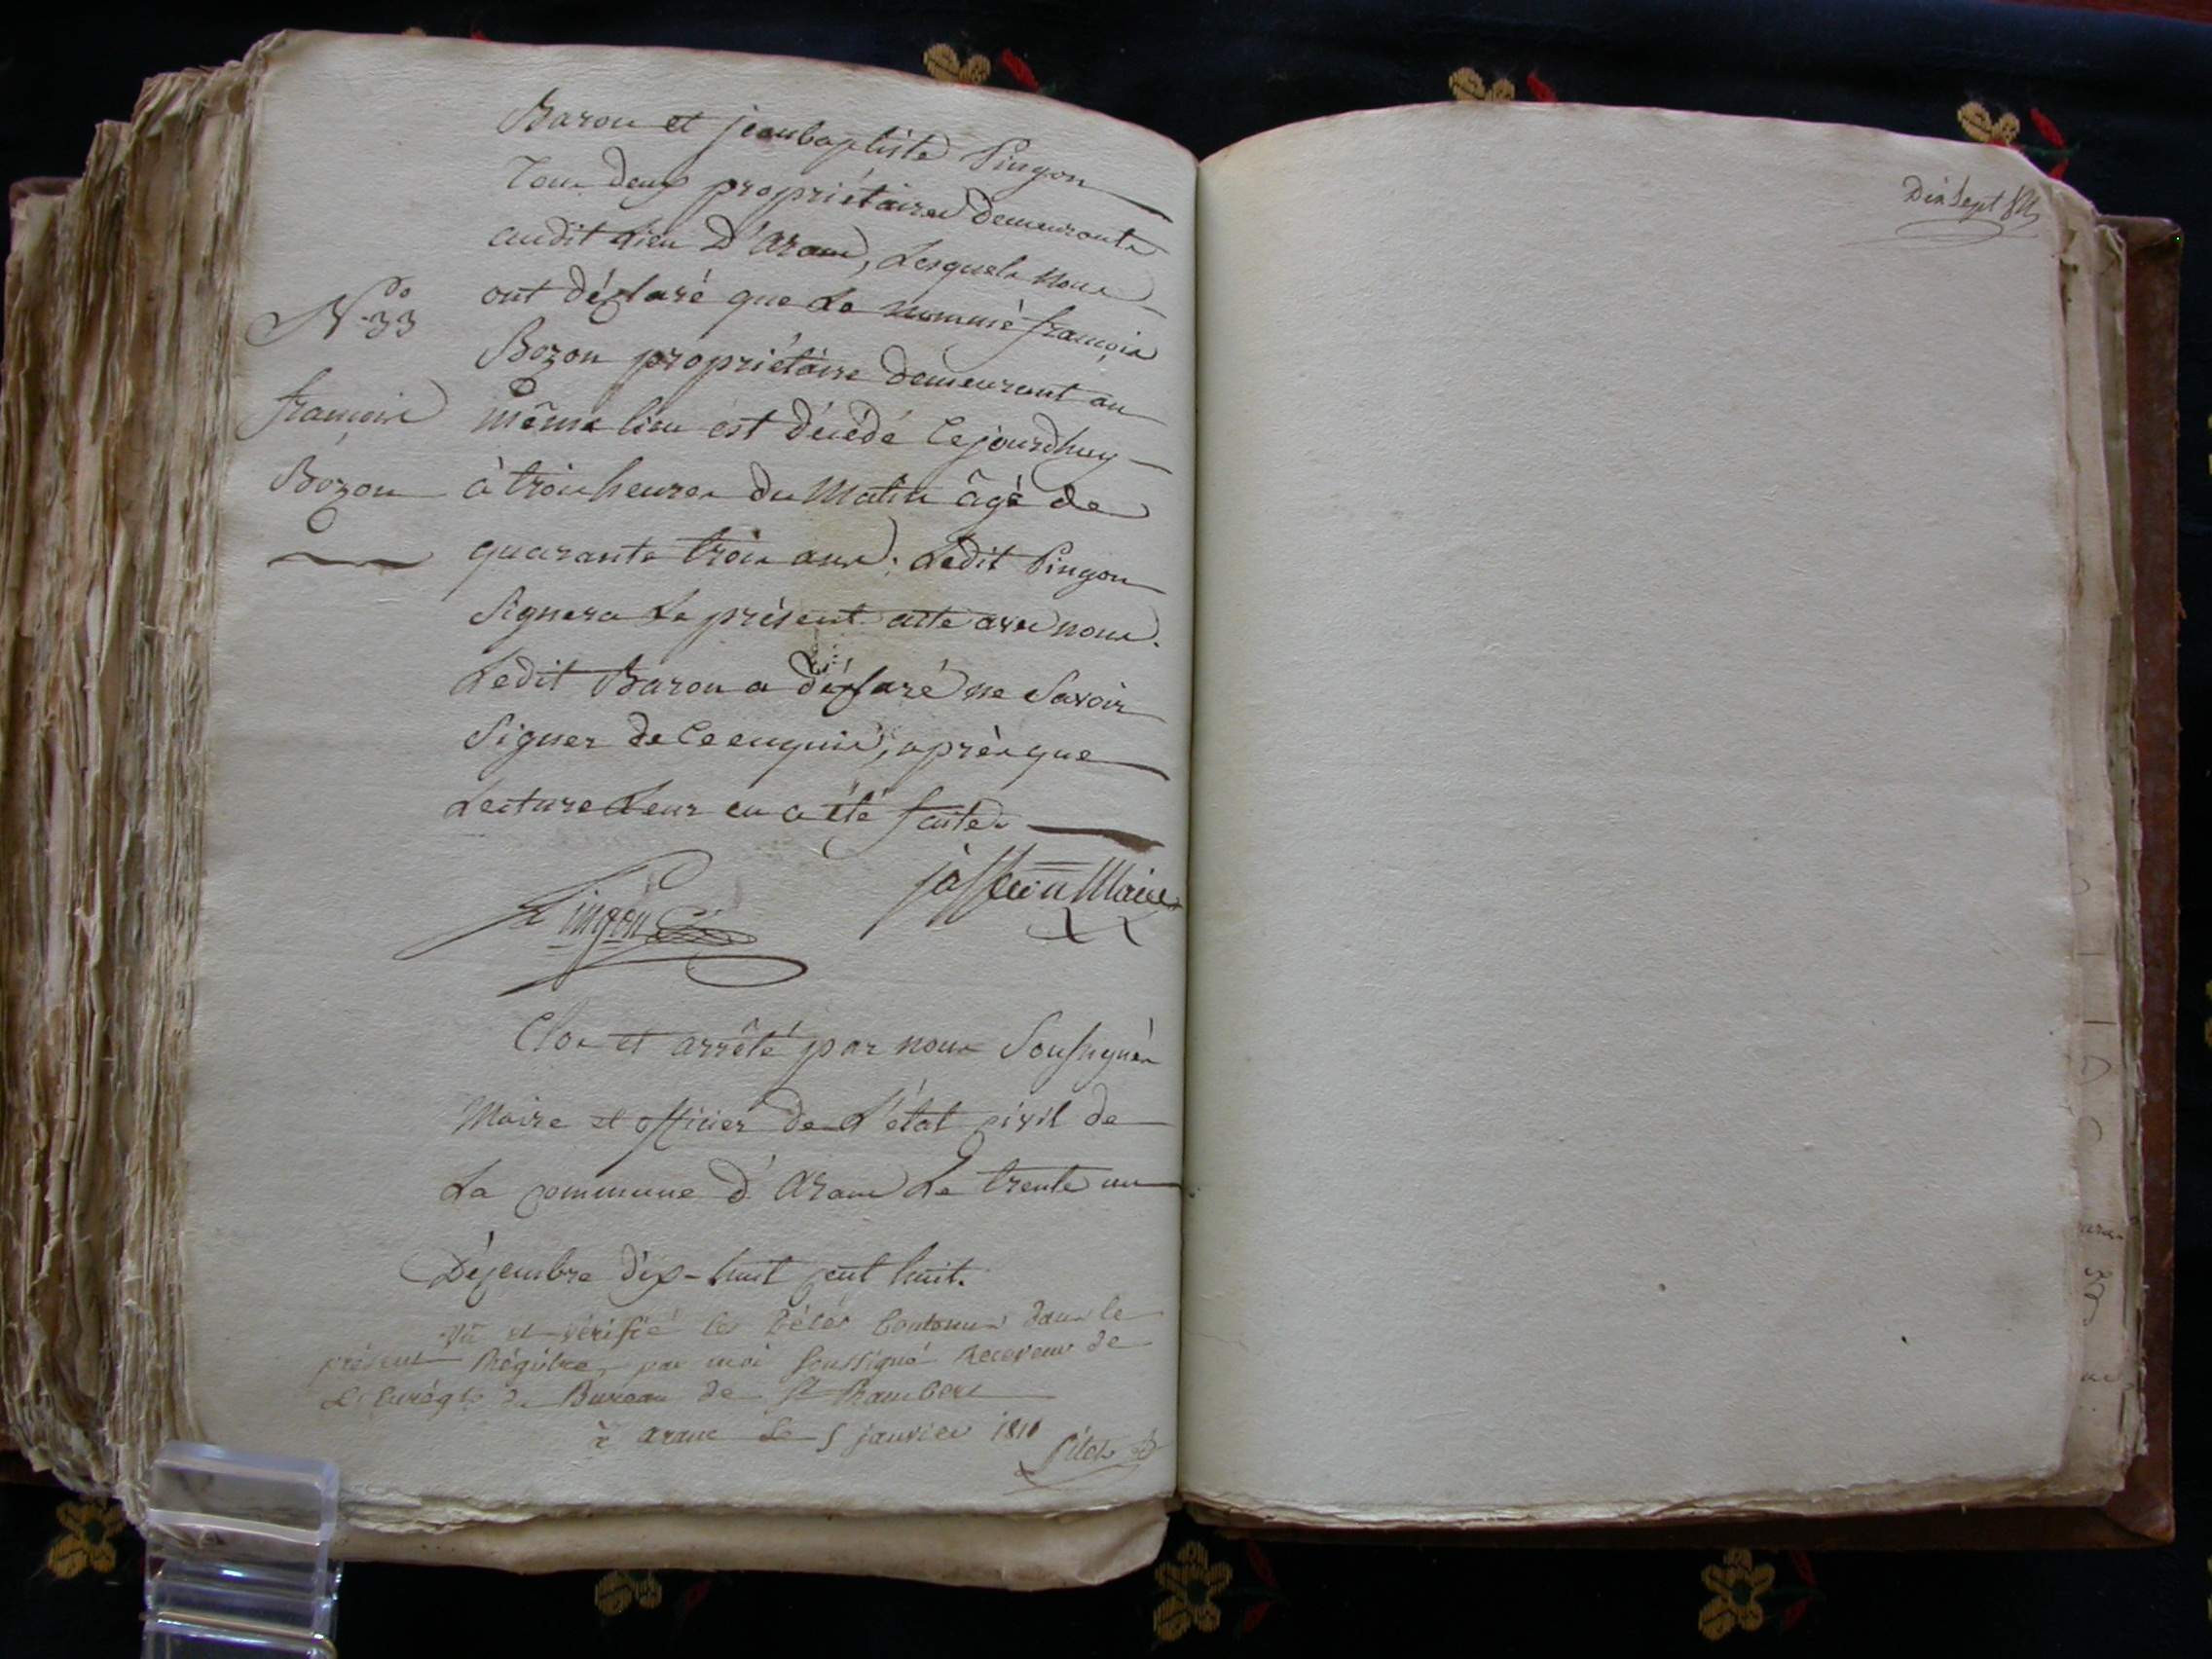 Baron et jeanbaptiste Pingon
Tous deux propriétaires demeurants
audit Lieu D'Aranc, Lesquels nous
ont déclaré que Le nommé françois
N.o 33
Bozon propriétaire demeurant au
françois
même lieu est décédé Cejourdhuy
Bozon
à trois heures du Matin âgé de
quarante trois ans. Ledit Pingon
Signera Le présent acte avec nous.
Ledit Baron a déclaré ne Savoir
Signer de Ce enquis, après que
Lecture Leur en a été faite.
Pingon
Maire
Clos et arrêté par nous Soussignés
Maire et officier de L'état civil de
La commune d'Aranc Le trente un
Décembre dix-huit cent huit.
Vu et vérifié les Contenus dans le
présent Régistre, par moi soussigné Receveur de
L'Enregt du Bureau de St Rambert
à aranc Le 5 janvier 1810
Dix Sept